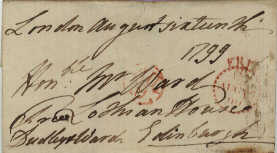 London August sixteenth
1799
Honble Mr Ward
Lothian House
Dudley & Ward Edinburgh